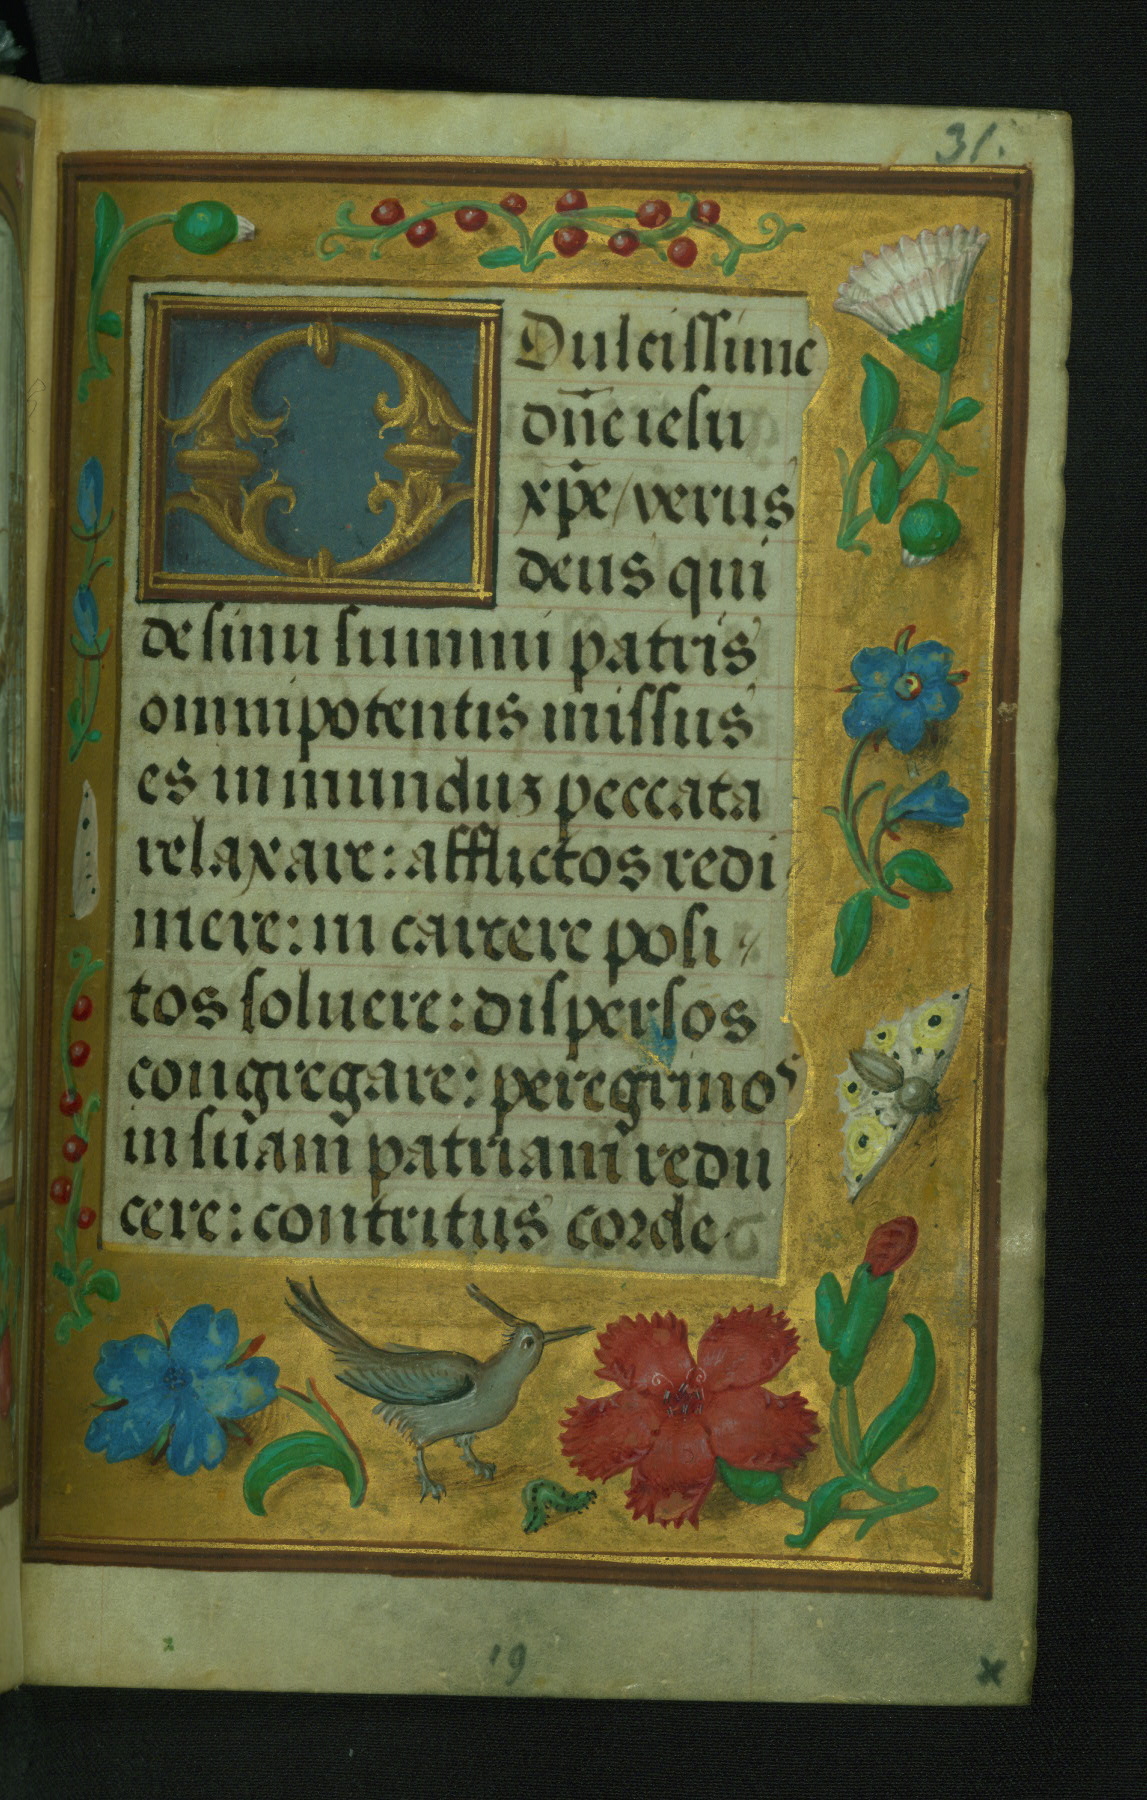 31.
O Dulcissime
dn̄e iesu
xp̄e/verus
deus qui
de sinu summi patris
omnipotentis missus
es in munduȝ peccata
relaxare: afflictos redi
mere: in carcere posi
tos soluere: dispersos
congregare: peregrinos
in suam patriam redu
cere: contritus corde
19
x